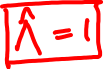 λ̂ = 1